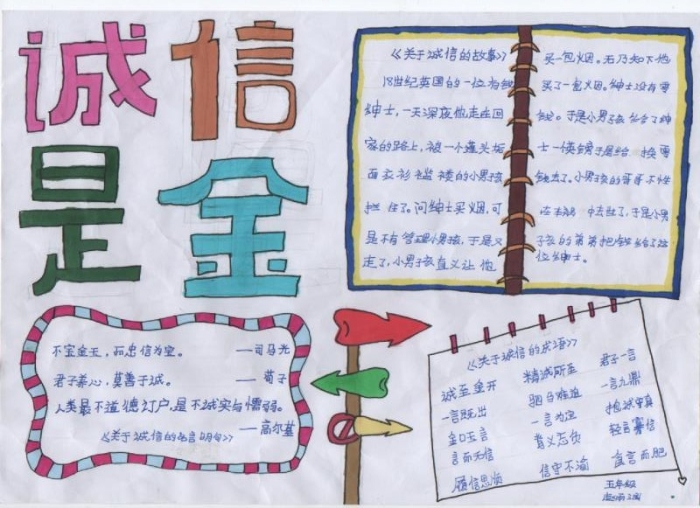 诚信
是金
《关于诚信的故事》
18世纪英国的一位有钱
绅士,一天深夜他走在回
家的路上,被一个蓬头垢
面衣衫褴褛的小男孩
拦住了。问绅士买烟,可
是不有管理小男孩,于是又
走了,小男孩又让他
买一包烟。无乃知下他
买了一包烟。绅士没有零
钱。于是小男孩 了绅
士一英镑于是给 换零
钱去了。小男孩的哥哥不
在 中去世了,于是小男
孩的弟弟把钱给了这
位绅士。
不宝金玉,而忠信为宝。 ——司马光
君子养心,莫善于诚。 ——荀子
人类最不道德订户,是不诚实与懦弱。
——高尔基
《关于诚信的名言明句》
《关于诚信的成语》
诚至金开 精诚所至 君子一言
一言既出 驷马难追 一言九鼎
金口玉言 一言为定 抱诚守真
言而无信 背义忘负 轻言寡信
履信思顺 信守不渝 食言而肥
五年级